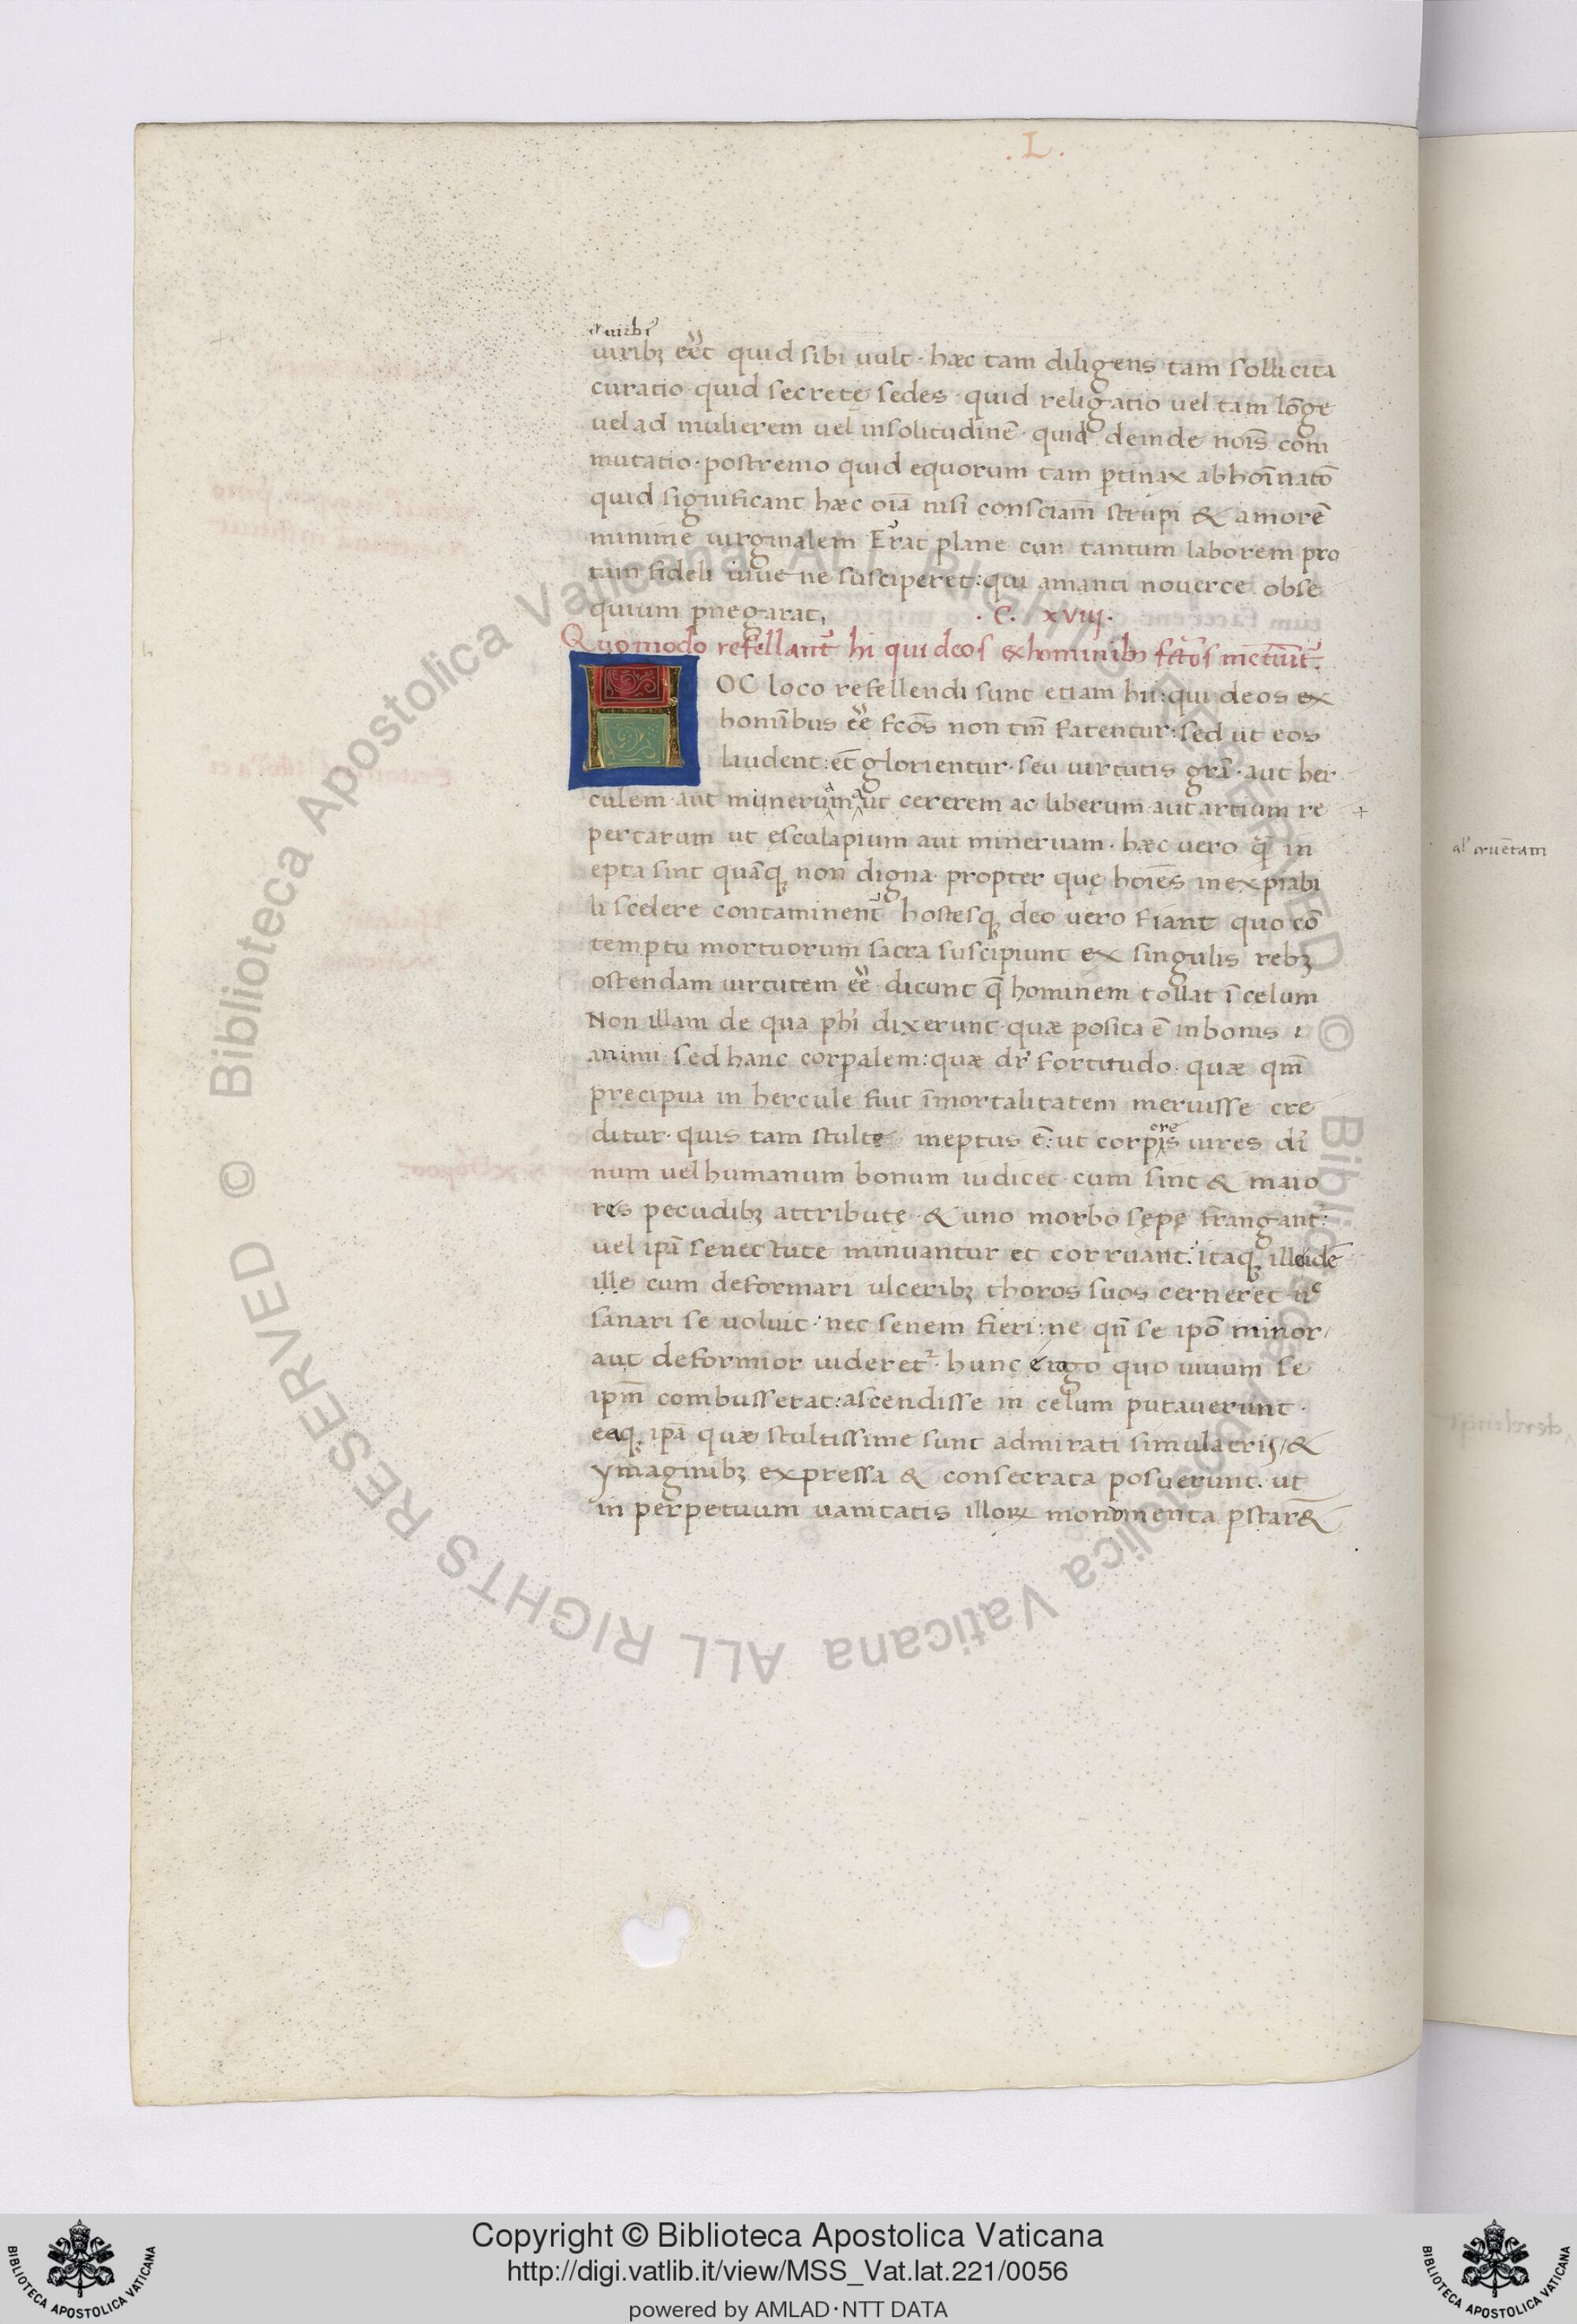 .L.
cruribꝫ
uiribꝫ eēt quid sibi uult · hæc tam diligens tam sollicita
curatio · quid secretę sedes · quid religatio uel tam lōge
uel ad mulierem uel insolitudinē · quid deinde noīs com
mutatio · postremo quid equorum tam ꝑtinax abhoīnatō
quid significant hæc oīa nisi consciam̄ strupi & amorē
minime uirginalem Erat plane cur tantum laborem pro
tam fideli iuue ne susciperet : qui amanti nouerce obse
quium ꝑnegarat,
· C. xviij ·
Quomodo refellant᷑ hi qui deos exhominibꝫ fctōs metuūt᷑.
OC loco refellendi sunt etiam hii : qui deos ex
homībus eē fcōs non tm̄ fatentur : sed ut eos
laudent : et̄ glorientur · seu uirtutis grā · aut her
culem · aut munerum ut cererem ac liberum aut artium re
pertarum ut ęsculapium aut mineruam · hæc uero q̄ in
epta sint quāqꝫ non digna · propter quę hoīes inexpiabi
li scelere contaminent᷑ hostesqꝫ deo uero fiant quo cō
temptu mortuorum sacra suscipiunt ex singulis rebꝫ
ostendam uirtutem eē · dicunt q̄ hominem tollat ī cęlum
Non illam de qua phī dixerunt · quæ posita ē inbonis
animi sed hanc corpalem : quæ dr̄ fortitudo · quæ qm̄
precipua in hercule fuit īmortalitatem meruisse cre
ditur · quis tam stulte ineptus ē : ut corpis uires di
ore
num uel humanum bonum iudicet · cum sint & maio
res pecudibꝫ attributę · & uno morbo sępę frangant᷑ :
uel ipā senectute minuantur et corruant : itaqꝫ idē
ille cum deformari ulceribꝫ thoros suos cerneret nc
sanari se uoluit · nec senem fieri : ne qn̄ se ipō minor
aut deformior uideret᷑ · hunc ergo quo uiuum se
ipm̄ combusserat : ascendisse in celum putauerunt ·
eaqꝫ ipā quæ stultissime sunt admirati simulacris / &
ymaginibꝫ expressa & consecrata posuerunt . ut
in perpetuum uanitatis illoꝝ monomenta p̄starēt
al' cruētam
Copyright © Biblioteca Apostolica Vaticana
http://digi.vatlib.it/view/MSS_Vat.lat.221/0056
powered by AMLAD·NTT DATA
BIBLIOTECA APOSTOLICA VATICANA
BIBLIOTECA APOSTOLICA VATICANA
© Biblioteca Apostolica Vaticana ALL RIGHTS RESERVED © Biblioteca Apostolica Vaticana ALL RIGHTS RESERVED